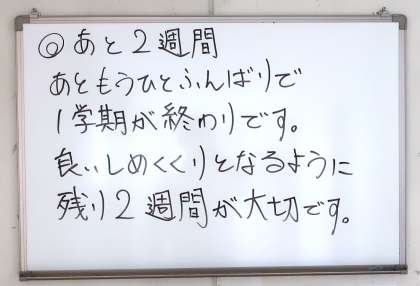 ◎あと2週間
あともうひとふんばりで
1学期が終わりです。
良いしめくくりとなるように
残り2週間が大切です。